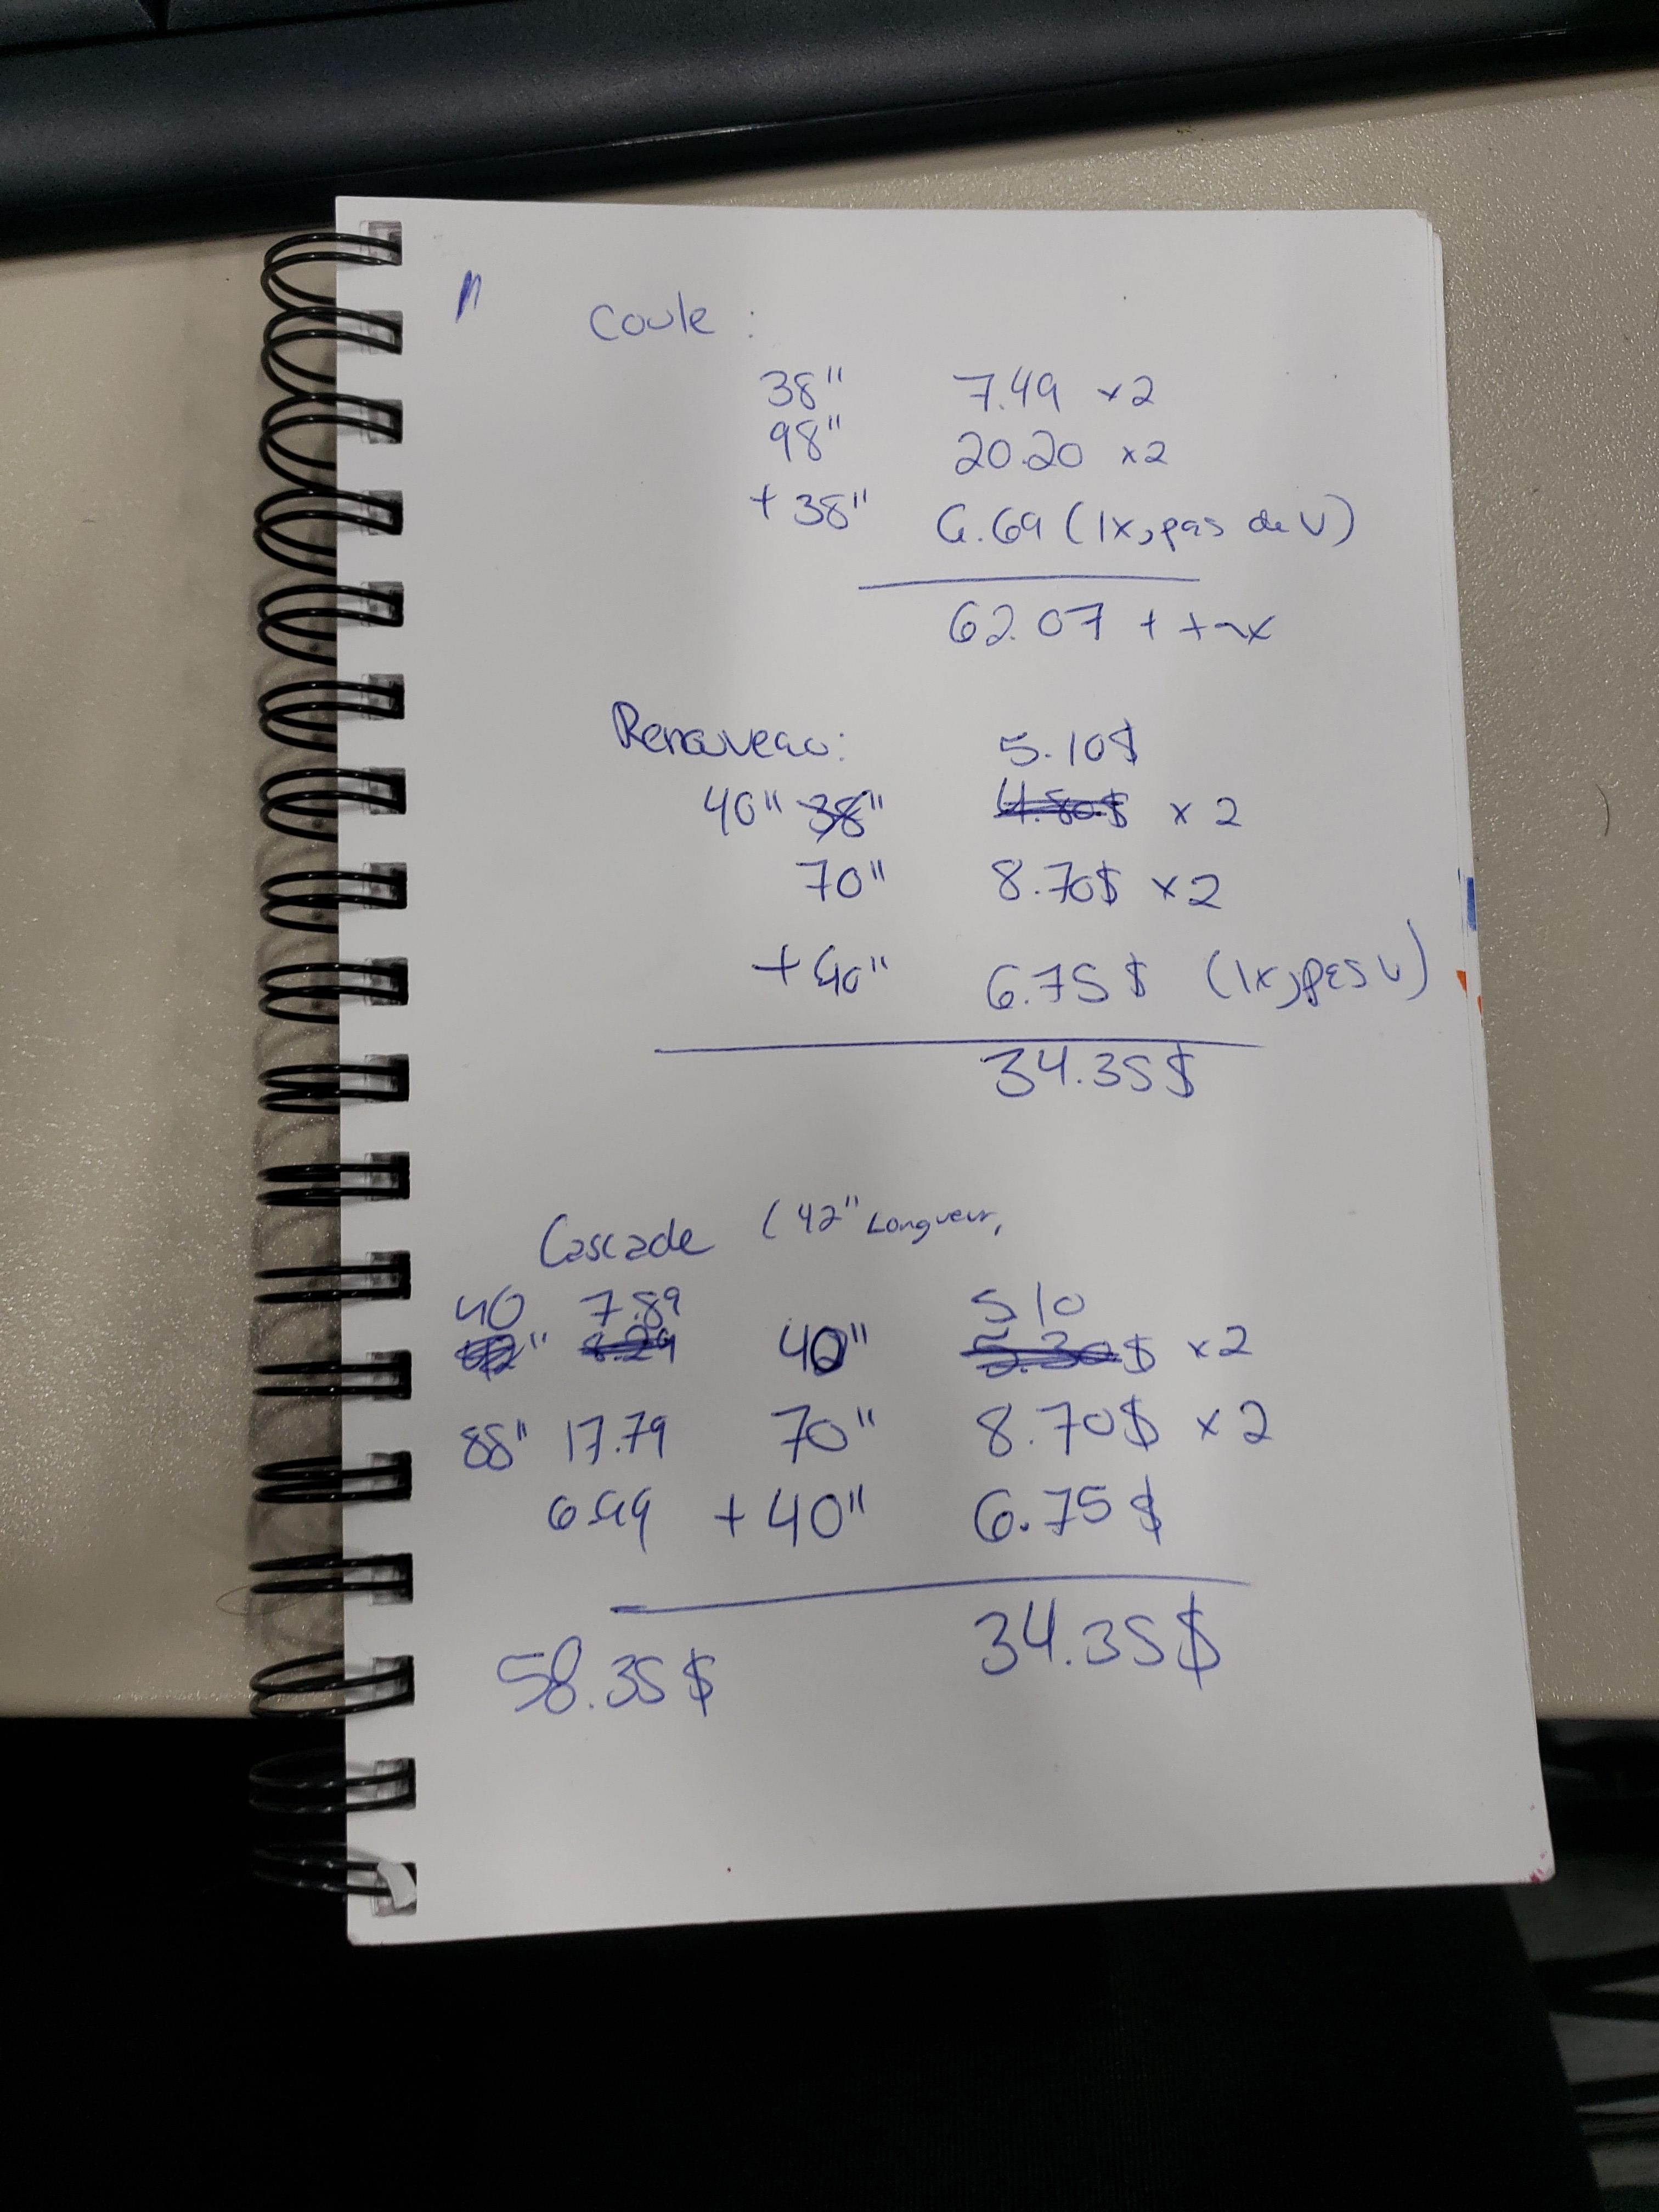 Coule :
38" 7.49 x2
98" 20.20 x2
+ 38" 6.69 (1x, pas de V)
62.07 + tax
Renouveau: 5.10$
40" 38" 4.80$ x 2
70" 8.70$ x2
+ 40" 6.75$ (1x, pas V)
34.35$
Cascade (42" Longueur,
40 7.89 5 10
42" 8.29 40" 5.30$ x2
88" 17.79 70" 8.70$ x2
6.99 + 40" 6.75$
58.35$ 34.35$